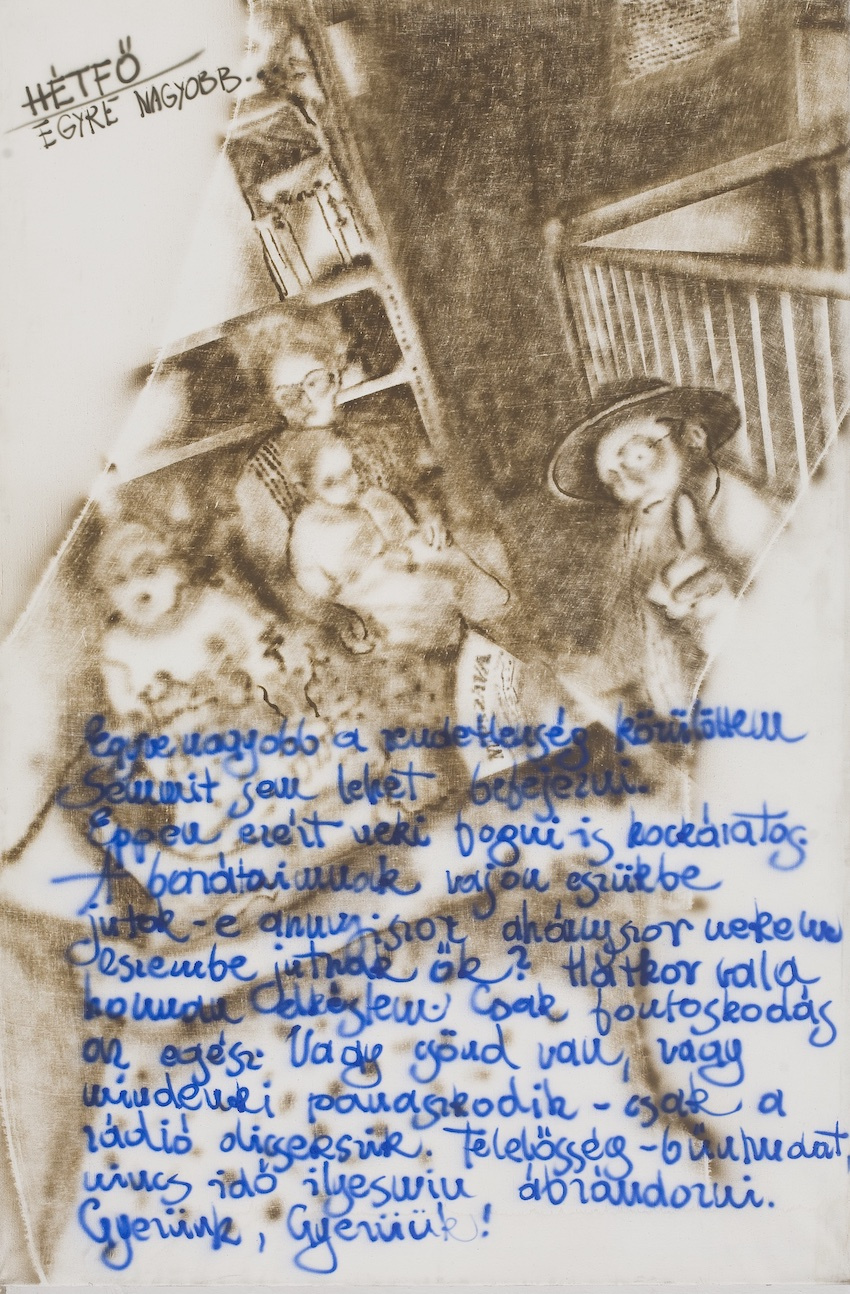 HÉTFŐ
EGYRE NAGYOBB..
Egyre nagyobb a rendetlenség körülöttem
Semmit sem lehet befejezni.
Éppen ezért neki fogni is kockázatos.
A barátaimnak vajon eszükbe
jutok-e annyiszor ahányszor nekem
eszembe jutnak ők? Hatkor vala
honnan elkéstem. Csak fontoskodás
az egész. Vagy gond van, vagy
mindenki panaszkodik - csak a
rádió dicsekszik. Felelősség-bűntudat,
nincs idő ilyesmin ábrándozni.
Gyerünk, Gyerünk!